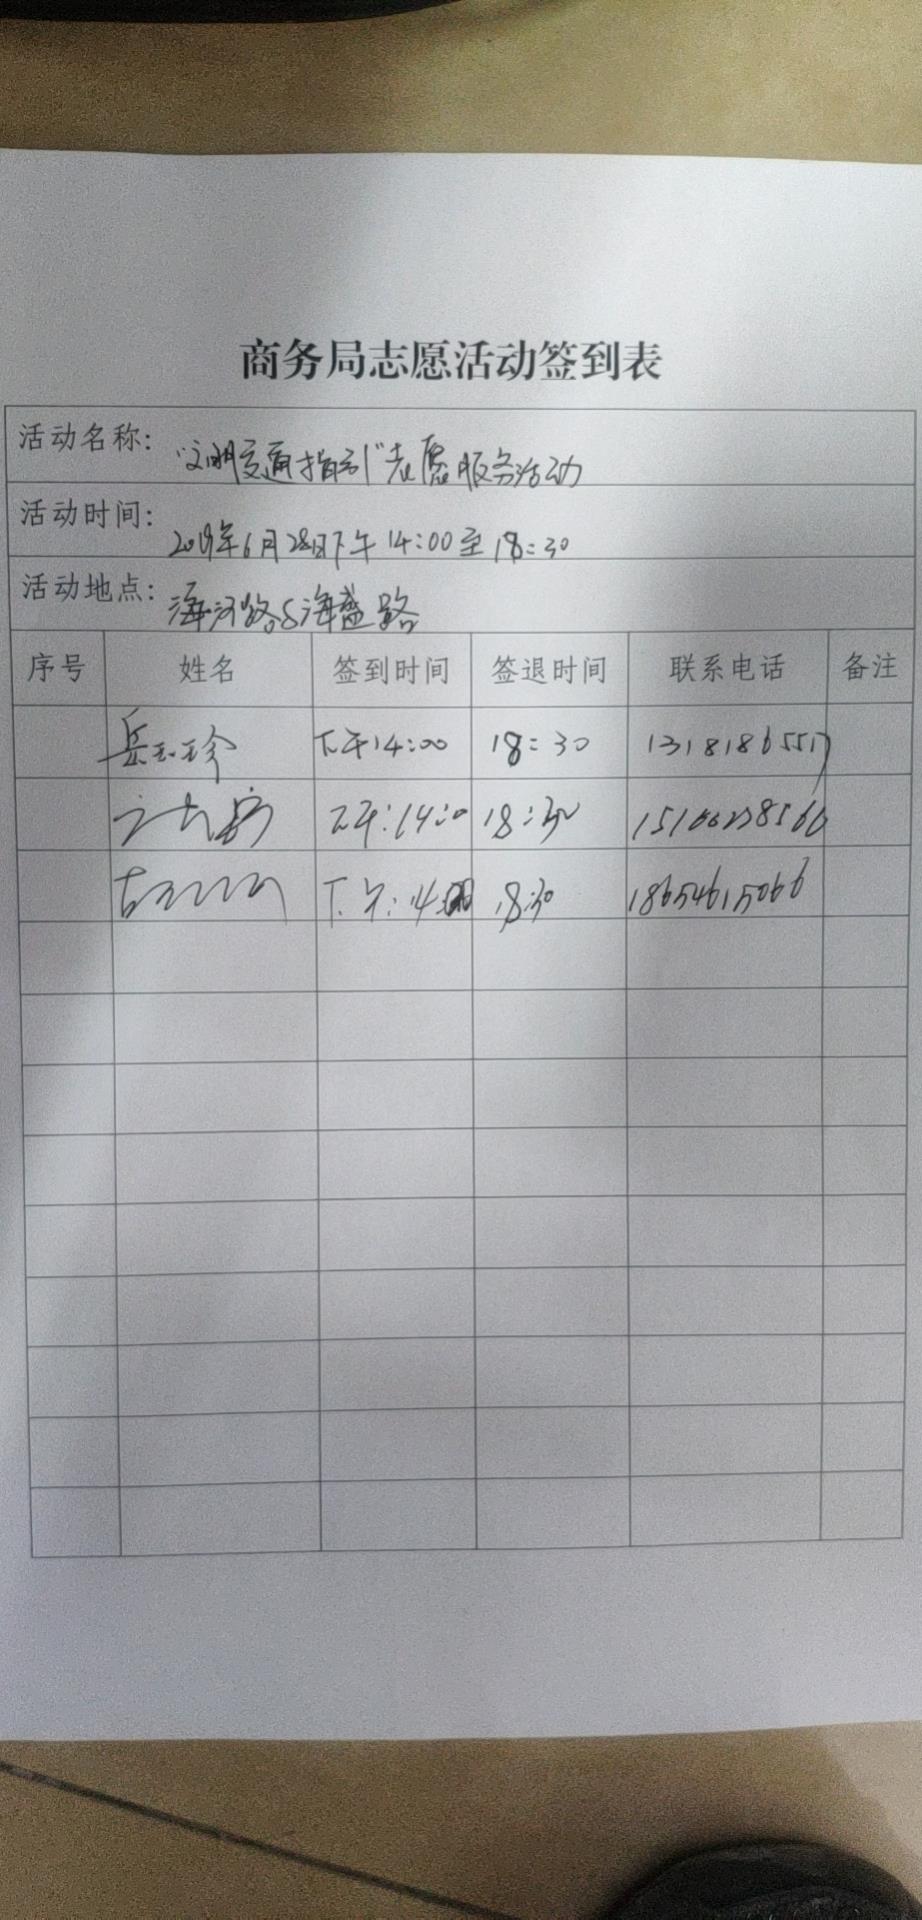 商务局志愿活动签到表
活动名称: "文明交通指引"志愿服务活动
活动时间: 2019年6月28日下午14:00至18:30
活动地点: 海河路与海盛路
序号 姓名 签到时间 签退时间 联系电话 备注
岳玉珍 下午14:00 18:30 13181865517
下午:14:0 18:30
下午:14:00 18:30 18654615066